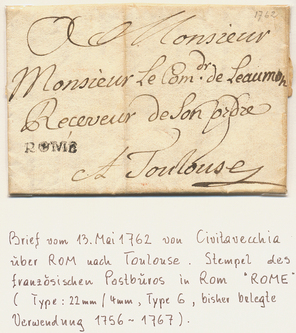 1762
A Monsieur
Monsieur Le Com.dr de Leaumon
Receveur de Son ordre
ROME
A Toulouse
Brief vom 13. Mai 1762 von Civitavecchia
über ROM nach Toulouse. Stempel des
französischen Postbüros in Rom "ROME"
( Type : 22mm / 4mm, Type 6, bisher belegte
Verwendung 1756 ~ 1767).